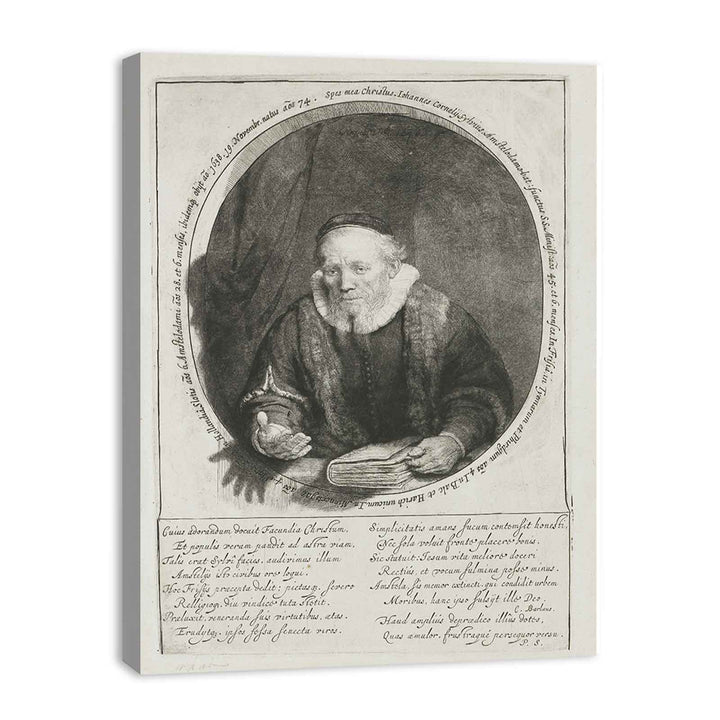 Spes mea Christus. Iohannes Cornely Sylvius, Amstelodamobat. functus S.S. Minist. aōs 45. et 6. menses. In Frisia in Tyemarum et Phirdgum aōs 4. In Balc et Harich unicum. In Minnertsga aōs 4. Hollandiæ, Slotis aōs 6. Amstelodami aōs 28. et 6. menses, ibidemq. obijt aō. 1638. 19. Novembr. natus aōs 74.
Cuius adorandum docuit Facundia Christum,
Et populis veram pandit ad astra viam,
Talis erat Sylvî facies. audivimus illum
Amstelijs isto civibus ore loqui.
Hoc Frisijs præcepta dedit; pietasq. severo
Relligioq. diu vindice tuta stetit.
Præluxit, veneranda suis virtutibus, ætas.
Erudytq. ipsos fessa senecta viros.
Simplicitatis amans fucum contemsit honesti,
Nec sola voluit fronte placere bonis.
Sic statuit: Iesum vita meliore doceri
Rectiùs, et vocum fulmina posse minus.
Amstela, sis memor extincti, qui condidit urbem
Moribus, hanc ipso fulsijt ille Deo.
C. Barlæus.
Haud amplius deprædico illius dotes,
Quas æmulor, frustraque persequor versu.
P. S.